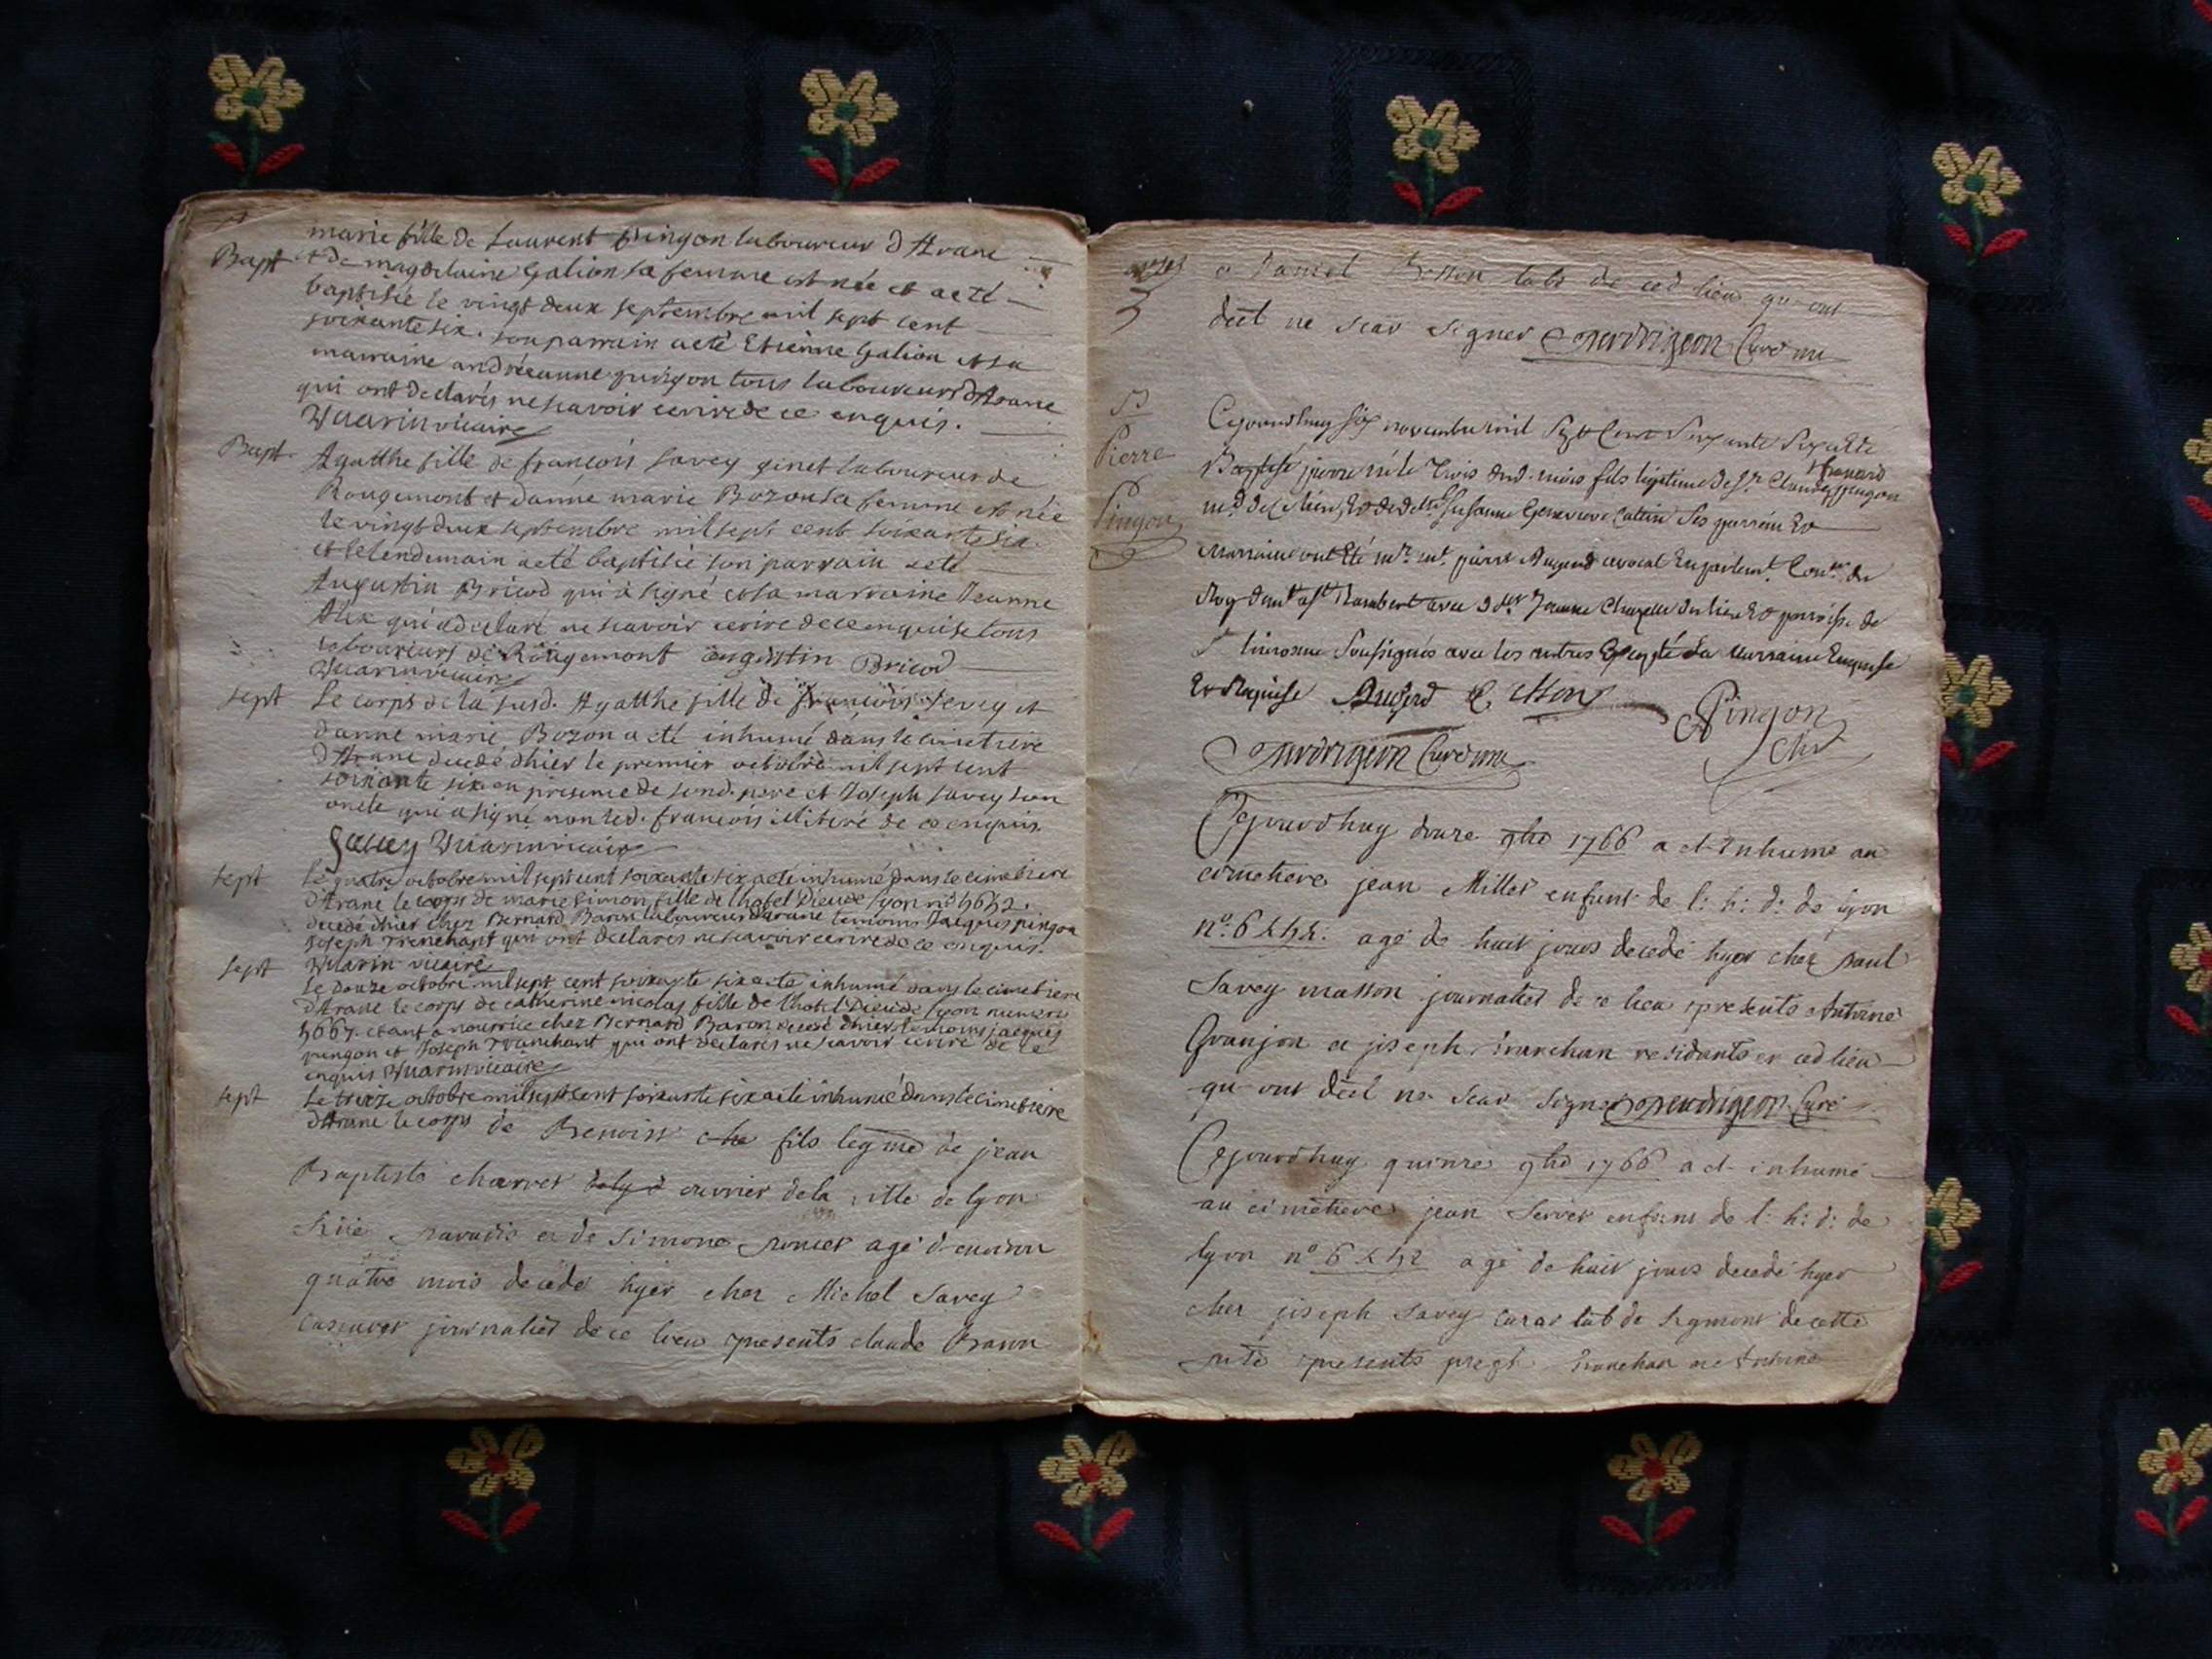 marie fille de Laurent pingon laboureur d'Arane
Bapt et de magdelaine Galion sa femme est née et a eté
baptisée le vingt deux septembre mil sept cent
soixante six. son parrain a eté Etienne Galion et sa
marraine andréanne pingon tous laboureurs d'Arane
qui ont declarés ne scavoir ecrire de ce enquis.
Wuarin vicaire
Bapt. Agatthe fille de françois savey ginet laboureur de
Rougemont et d'anne marie Bozon sa femme est née
le vingt deux septembre mil sept cent soixante six.
et le lendemain a eté baptisée son parrain a eté
Augustin Bricod qui a signé et sa marraine Jeanne
Alix qui a declaré ne scavoir ecrire de ce enquise tous
laboureurs de Rougemont augustin Bricod
Wuarin vicaire
sept Le corps de la susd. Agatthe fille de françois Sevey et
d'anne marie Bozon a eté inhumé dans le cimetiere
d'Arane decedé d'hier le premier octobre mil sept cent
soixante six en presence de sond. pere et Joseph savey son
oncle qui a signé non led. françois illiteré de ce enquis.
Savey Wuarin vicaire
sept Le quatre octobre mil sept cent soixante six a eté inhumé dans le cimetiere
d'Arane le corps de marie simon fille de l'hotel Dieu de lyon n° 5652.
decedé d'hier chez Bernard Baron laboureur d'arane temoins Jacques pingon
Joseph Trenchant qui ont declarés ne scavoir ecrire de ce enquis.
sept Wuarin vicaire
Le douze octobre mil sept cent soixante six a eté inhumé dans le cimetiere
d'Arane le corps de catherine nicolas fille de l'hotel Dieu de lyon numero
5667. etant a nourrice chez Bernard Baron decedé d'hier temoins jacques
pingon et Joseph Tranchant qui ont declarés ne scavoir ecrire de ce
enquis Wuarin vicaire
sept Le treize octobre mil sept cent soixante six a eté inhumé dans le cimetiere
d'Arane le corps de Benoist che fils legme de jean
Baptiste charvet ouvrier de la ville de lyon
et de simone agé d'environ
quatre mois decedé hyer chez Michel Savey
journalier de ce lieu presents claude Baron
et Daniel labr de ced lieu qui ont
decl ne scav signer Perdrigeon Curé
B
Pierre
Pingon
Cejourdhuy six novembre mil Sept Cent Soixante Six a Eté
Baptisé pierre né le Trois dud. mois fils legitime de Sr. Claude pingon
md. de Ce lieu, Et de delle Susanne Genevieve Ses parrein Et
Marraine ont Eté mr. mt. pierre Augerd avocat En parlemt. Consr. du
Roy Rambert avec delle Jeanne du lieu Et parroisse de
Soussignés avec les autres Excepté la marraine Enquise
Et Requise Augerd Pingon
Perdrigeon Curé
Cejourdhuy douze 9bre 1766 a et inhumé au
cimetiere jean Millet enfant de l: h: d: de lyon
agé de huit jours decedé hyer chez paul
Savey masson journalier de ce lieu presents Antoine
Granjon et joseph Tranchan residants en ced lieu
qui ont decl ne scav signer Perdrigeon Curé
Cejourdhuy quinze 9bre 1766 a et inhumé
au cimetiere jean Servet enfant de l: h: d: de
lyon agé de huit jours decedé hyer
chez joseph Savey lab de de cette
presents Tranchan et Antoine